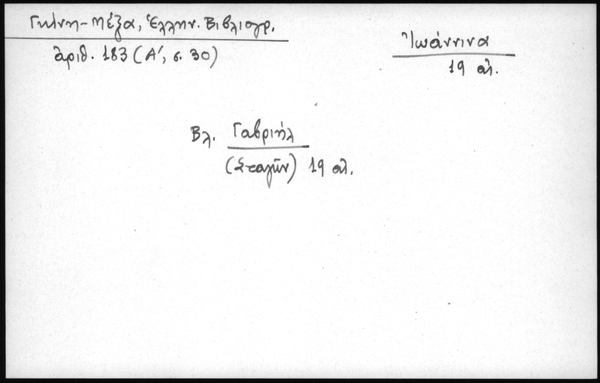 Γκίνη-Μέξα, Ἑλλην. Βιβλιογρ.
ἀριθ. 183 (Α΄, σ. 30)
Ἰωάννινα
19 αἰ.
Βλ. Γαβριήλ
(Σταγῶν) 19 αἰ.